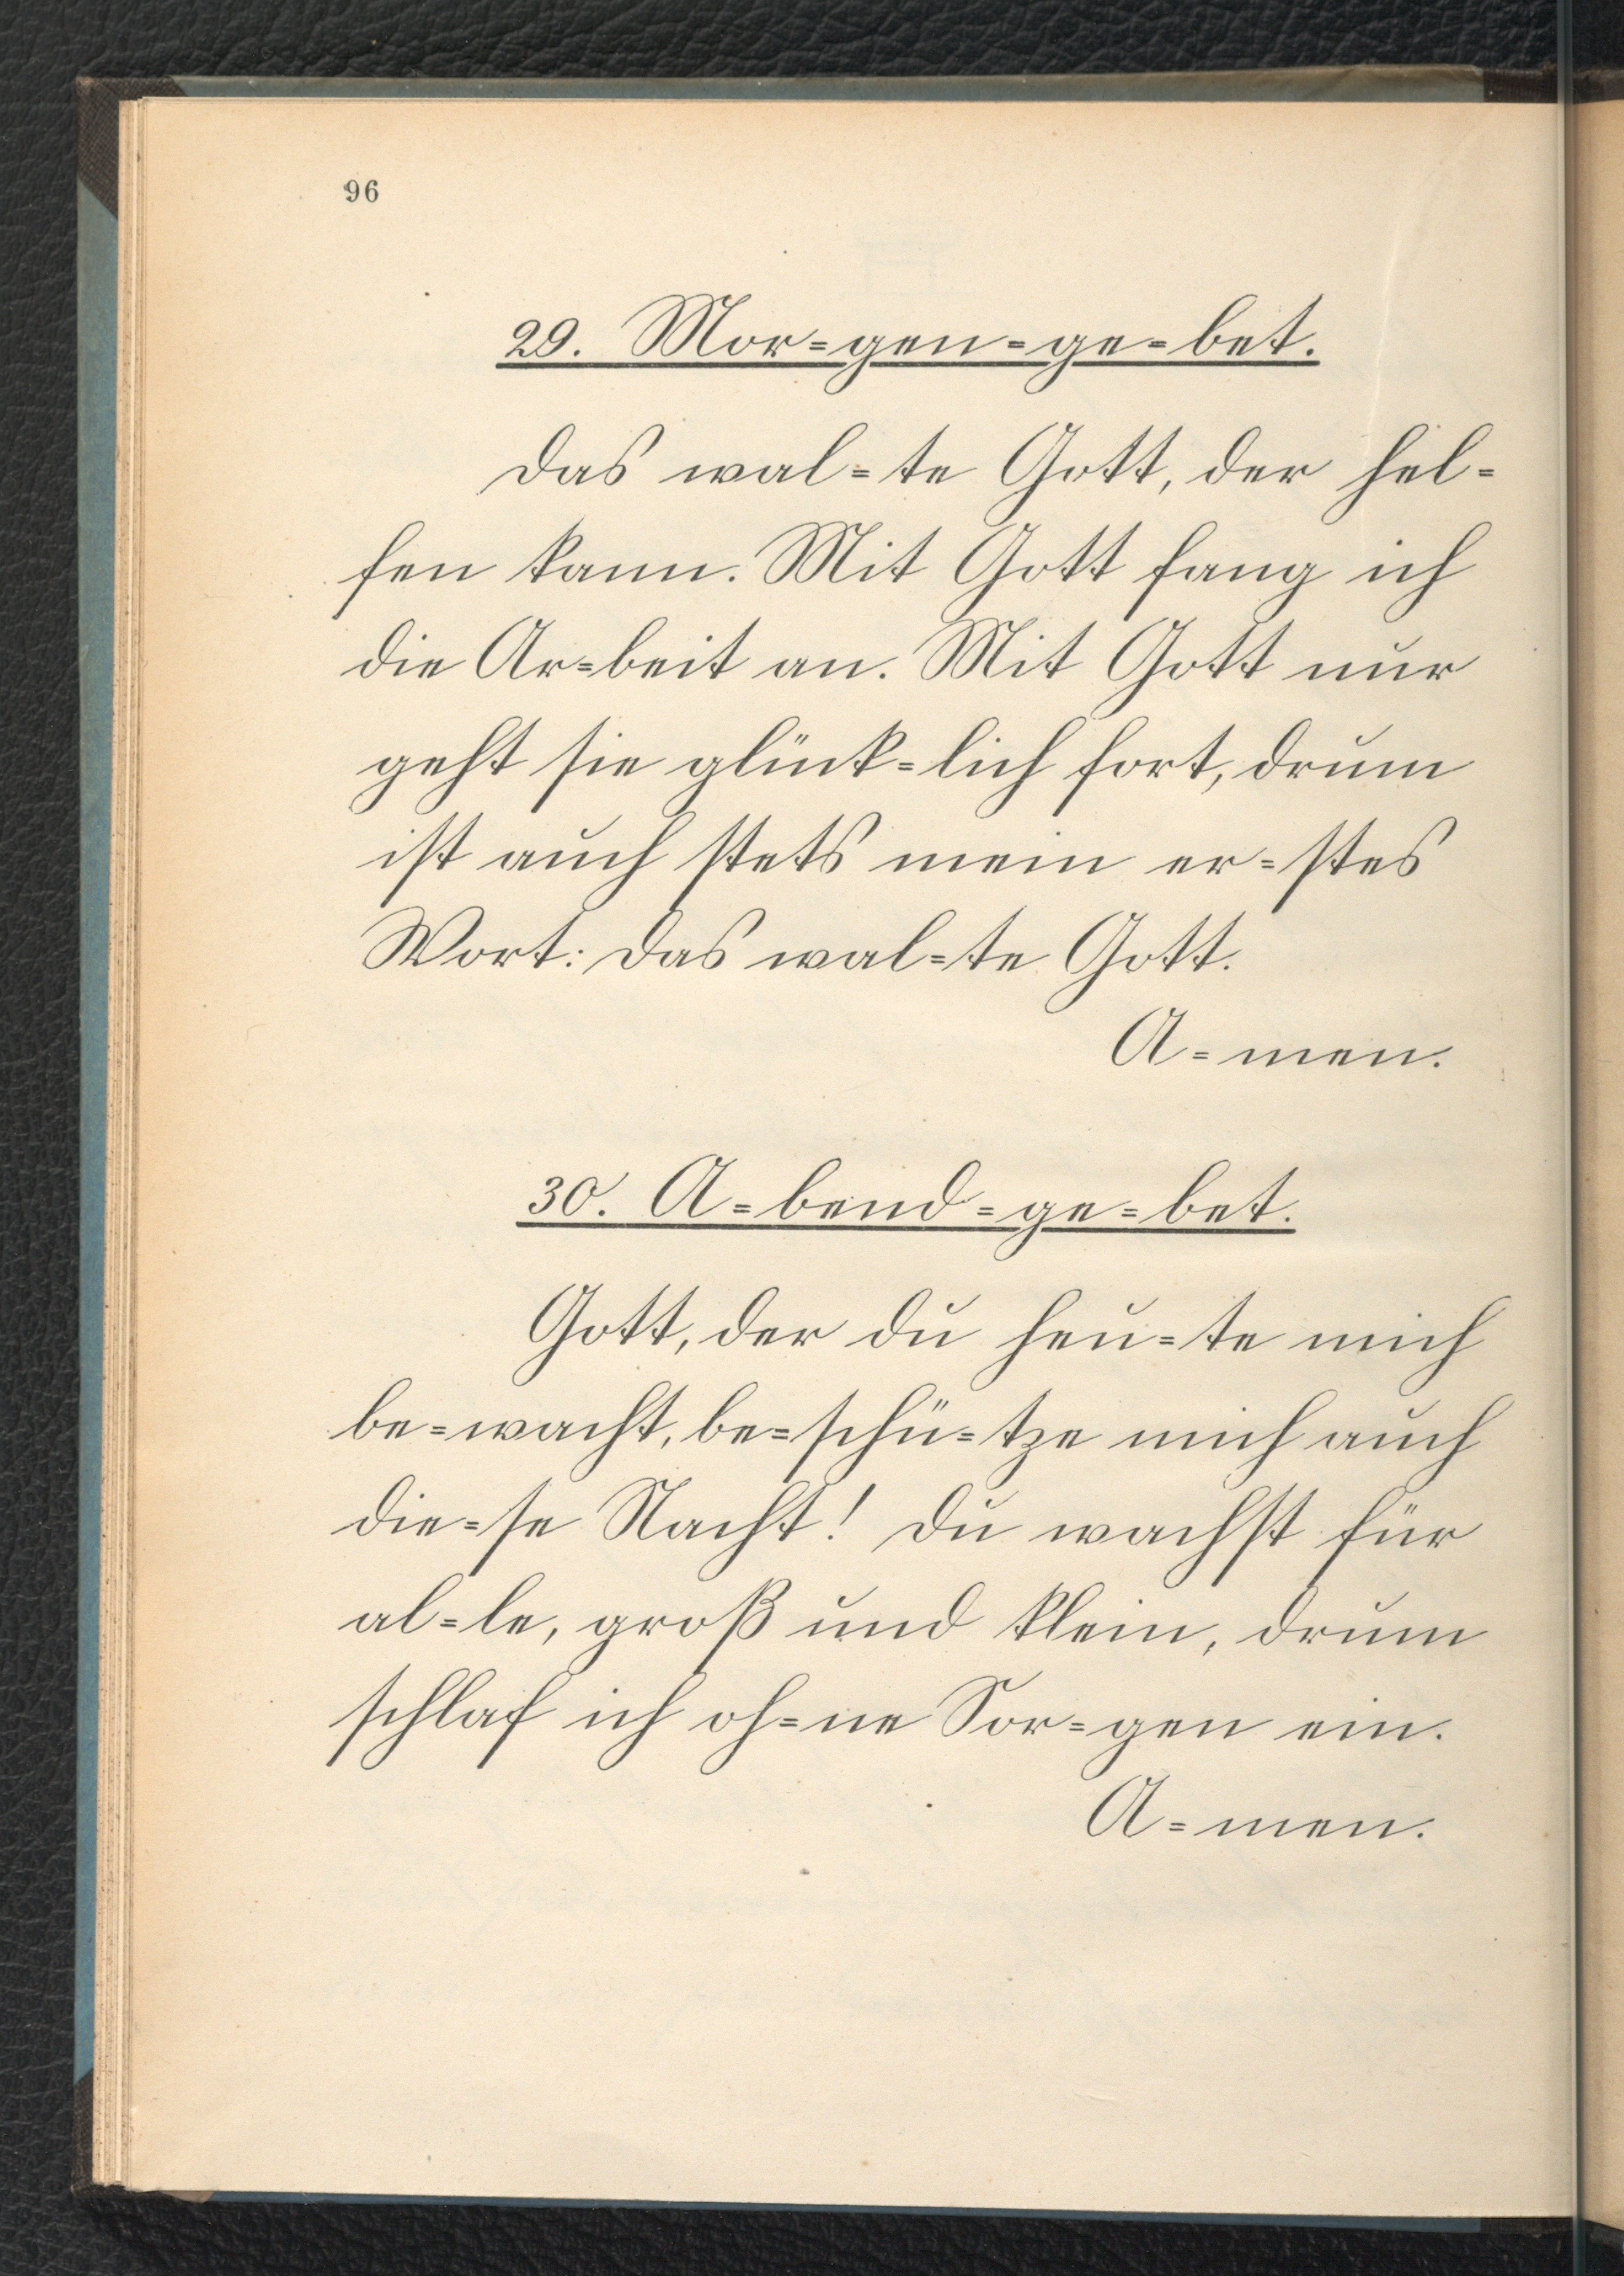 96
29. Mor=gen=ge=bet.
Das wal=te Gott, der hel=
fen kann. Mit Gott fang ich
die Ar=beit an. Mit Gott nur
geht sie glück=lich fort, drum
ist auch stets mein er=stes
Wort: Das wal=te Gott.
A=men.
30. A=bend=ge=bet.
Gott, der du heu=te mich
be=wacht, be=schü=tze mich auch
die=se Nacht! Du wachst für
al=le, groß und klein, drum
schlaf ich oh=ne Sor=gen ein.
A=men.